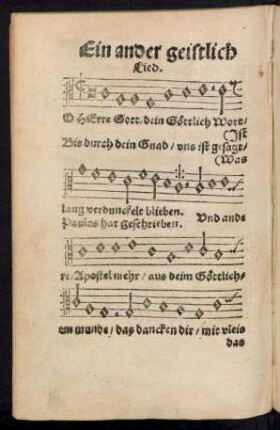 Ein ander geistlich
Lied.
O HErre Gott / dein Göttlich Wort /
(Ist
Bis durch dein Gnad / vns ist gesagt /
(Was
lang verdunckelt blieben.
Paulus hat geschrieben. Vnd ande
re / Apostel mehr / aus deim Göttlich⸗
em munde / das dancken dir / mit vleis
das